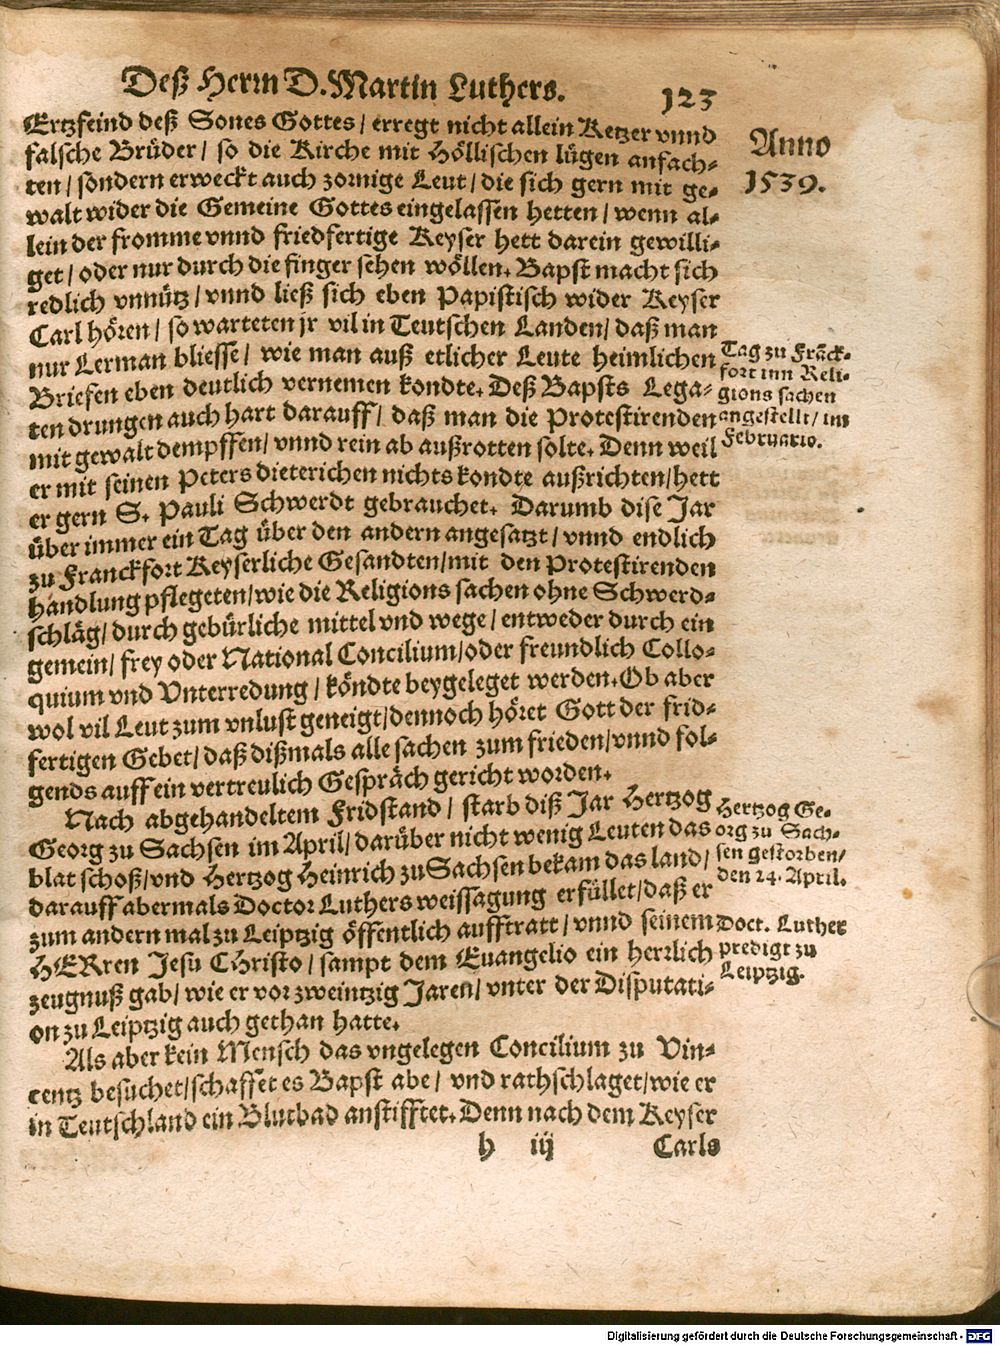 Deß Herrn D. Martin Luthers.
123
Anno
1539.
Ertzfeind deß Sones Gottes / erregt nicht allein Ketzer vnnd
falsche Brüder / so die Kirche mit Höllischen lügen anfach⸗
ten / sondern erweckt auch zornige Leut / die sich gern mit ge⸗
walt wider die Gemeine Gottes eingelassen hetten / wenn al⸗
lein der fromme vnnd friedfertige Keyser hett darein gewilli⸗
get / oder nur durch die finger sehen wöllen. Bapst macht sich
redlich vnnütz / vnnd ließ sich eben Papistisch wider Keyser
Carl hören / so warteten jr vil in Teutschen Landen / daß man
nur Lerman bliesse / wie man auß etlicher Leute heimlichen
Briefen eben deutlich vernemen kondte. Deß Bapsts Lega⸗
ten drungen auch hart darauff / daß man die Protestirenden
mit gewalt dempffen / vnnd rein ab außrotten solte. Denn weil
er mit seinen Peters dieterichen nichts kondte außrichten / hett
er gern S. Pauli Schwerdt gebrauchet. Darumb dise Jar
über immer ein Tag über den andern angesatzt / vnnd endlich
zu Franckfort Keyserliche Gesandten / mit den Protestirenden
handlung pflegeten / wie die Religions sachen ohne Schwerd⸗
schläg / durch gebürliche mittel vnd wege / entweder durch ein
gemein / frey oder National Concilium / oder freundlich Collo⸗
quium vnd Vnterredung / köndte beygeleget werden. Ob aber
wol vil Leut zum vnlust geneigt / dennoch höret Gott der frid⸗
fertigen Gebet / daß dißmals alle sachen zum frieden / vnnd fol⸗
gends auff ein vertreulich Gespräch gericht worden.
Tag zu Fräck⸗
fort inn Reli⸗
gions sachen
angestellt / im
Februario.
Nach abgehandeltem Fridstand / starb diß Jar Hertzog
Georg zu Sachsen im April / darüber nicht wenig Leuten das
blat schoß / vnd Hertzog Heinrich zu Sachsen bekam das land /
darauff abermals Doctor Luthers weissagung erfüllet / daß er
zum andern mal zu Leiptzig öffentlich aufftratt / vnnd seinem
HERren Jesu CHristo / sampt dem Euangelio ein herrlich
zeugnuß gab / wie er vor zweintzig Jaren / vnter der Disputati⸗
on zu Leiptzig auch gethan hatte.
Hertzog Ge⸗
org zu Sach⸗
sen gestorben /
den 24. April.
Doct. Luther
predigt zu
Leiptzig.
Als aber kein Mensch das vngelegen Concilium zu Vin⸗
centz besuchet / schaffet es Bapst abe / vnd rathschlaget / wie er
in Teutschland ein Blutbad anstifftet. Denn nach dem Keyser
h iij
Carls
Digitalisierung gefördert durch die Deutsche Forschungsgemeinschaft - DFG